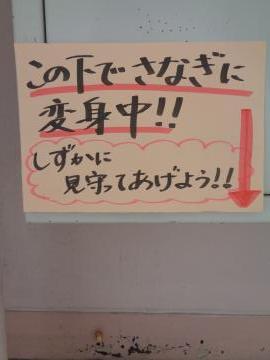 この下でさなぎに
変身中!!
しずかに
見守ってあげよう!!